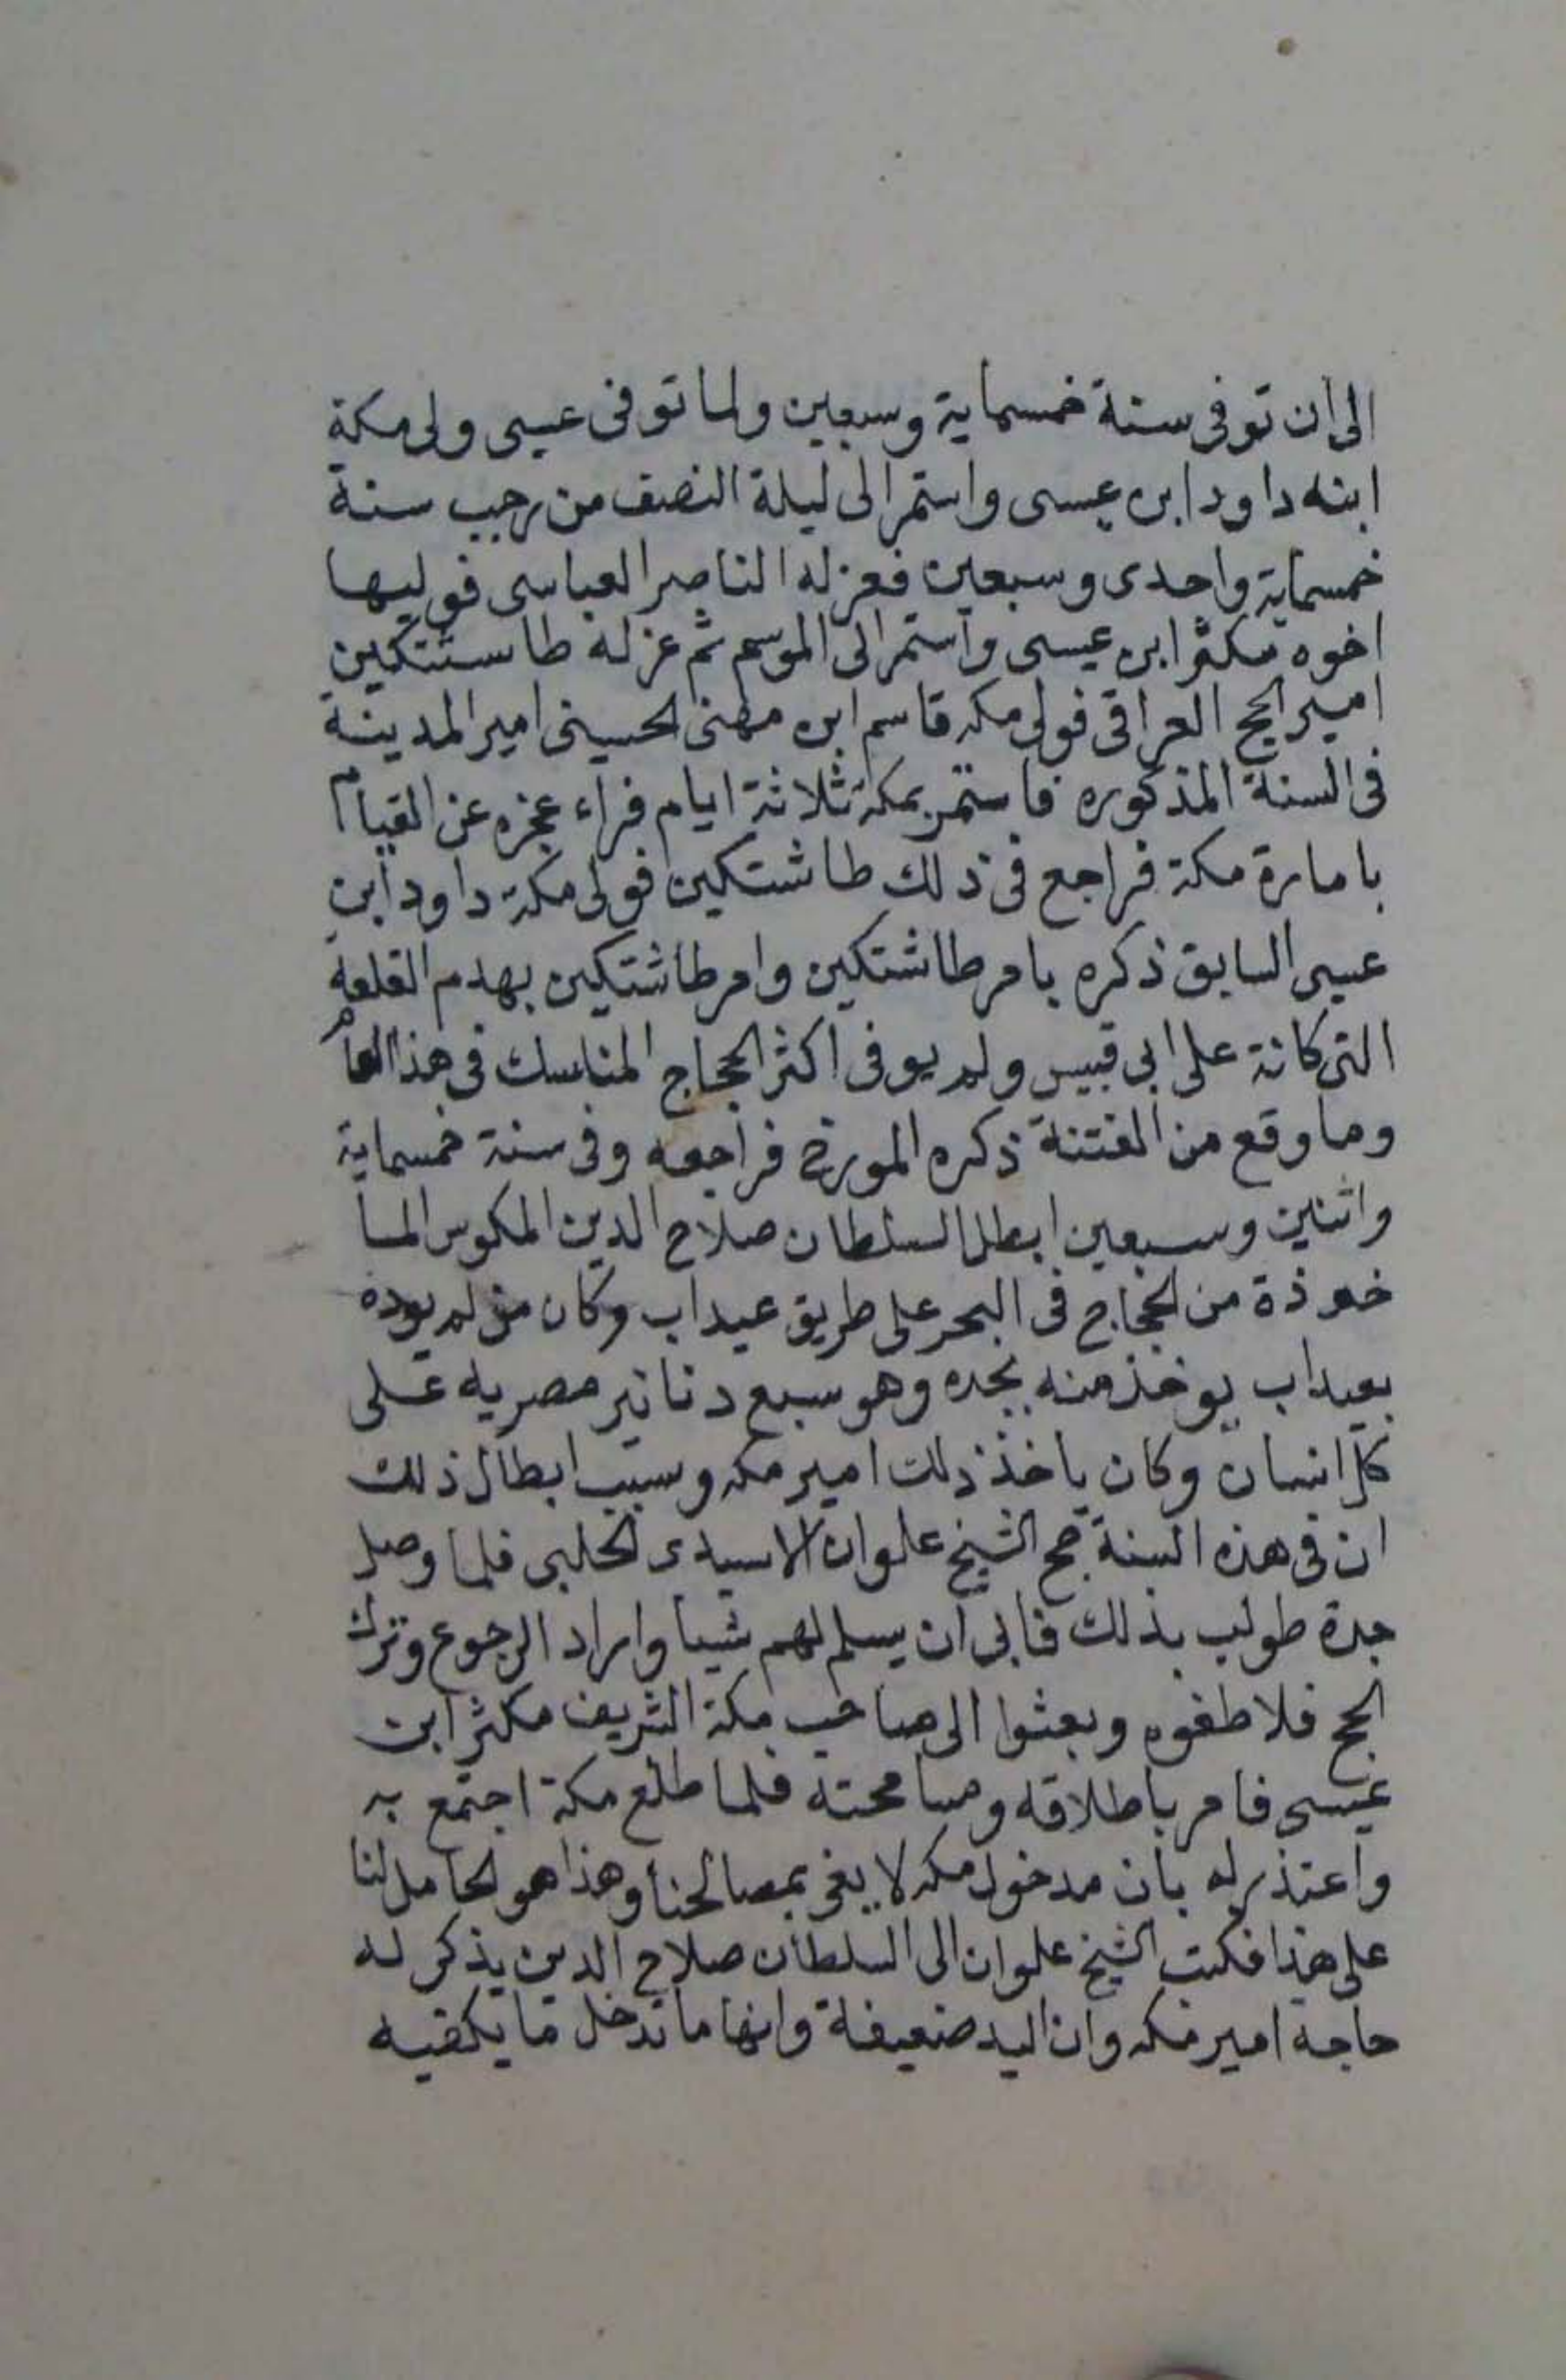 الى ان توفى سنة خمسماية وسبعين ولما توفى عيسى ولى مكة
ابنه داود ابن عيسى واستمر الى ليلة النصف من رجب سنة
خمسماية واحدى وسبعين فعزله الناصر العباسى فوليها
اخوه مكثر ابن عيسى واستمر الى الموسم ثم عزله طاستتكين
امير الحج العراقى فولى مكه قاسم ابن مهنى الحسينى امير المدينة
فى السنة المذكوره فاستمر بمكة ثلاثة ايام فراء عجزه عن القيام
بامارة مكة فراجع فى ذلك طاشتكين فولى مكة داود ابن
عيسى السابق ذكره بامر طاشتكين وامر طاشتكين بهدم القلعة
التى كانة على ابى قبيس ولم يوفى اكثر الحجاج المناسك فى هذا العام
وما وقع من الفتنة ذكره المورخ فراجعه وفى سنة خمسماية
واثنين وسبعين ابطل السلطان صلاح الدين المكوس الما
خوذة من الحجاج فى البحر على طريق عيداب وكان من لم يوده
بعيداب يوخذ منه بجده وهو سبع دنانير مصريه على
كل انسان وكان ياخذ ذلك امير مكه وسبب ابطال ذلك
ان فى هذه السنة حج الشيخ علوان الاسيدى الحلبى فلما وصل
جدة طولب بذلك فابى ان يسلم لهم شيا واراد الرجوع وترك
الحج فلاطفوه وبعثوا الى صاحب مكة الشريف مكثر ابن
عيسى فامر باطلاقه ومسامحته فلما طلع مكة اجتمع به
واعتذر له بان مدخول مكه لا يفى بمصالحنا وهذا هو الحامل لنا
على هذا فكتب الشيخ علوان الى السلطان صلاح الدين يذكر له
حاجة امير مكه وان اليد ضعيفة وانها ما تدخل ما يكفيه